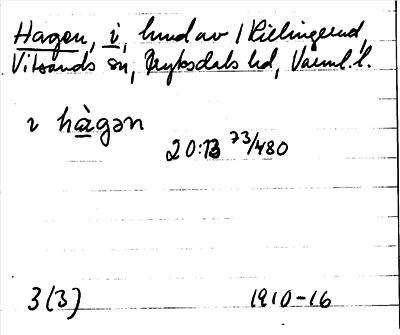 Hagen, i, hmd av 1 Kielingerud,
Vitsands sn, Fryksdals hd, Värml. l.
ı hàgən
20:13 73/480
3(3) 1910-16